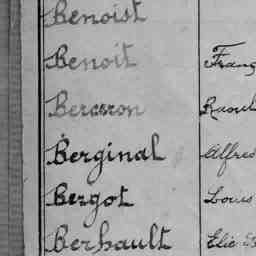 Benoist
Benoit Franç
Raoul
Berginal Alfred
Bergot Louis
Berhault Elie